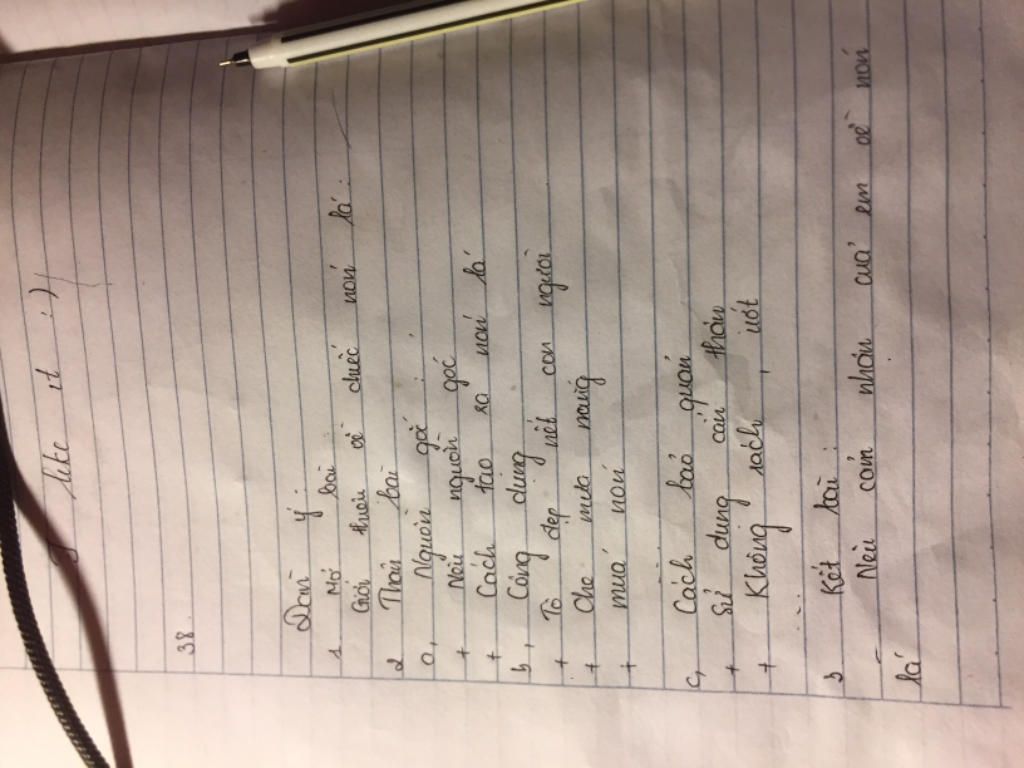 I like it :)
38.
Dàn ý:
1 Mở bài
Giới thiệu về chiếc nón lá:
2 Thân bài
a, Nguồn gốc:
+ Nêu nguồn gốc
+ Cách tạo ra nón lá
b, Công dụng
+ Tô đẹp nét con người
+ Che mưa nắng
+ múa nón
...
c, Cách bảo quản
+ Sử dụng cẩn thận
+ Không rách, ướt
....
3 Kết bài:
- Nêu cảm nhận của em về nón
lá